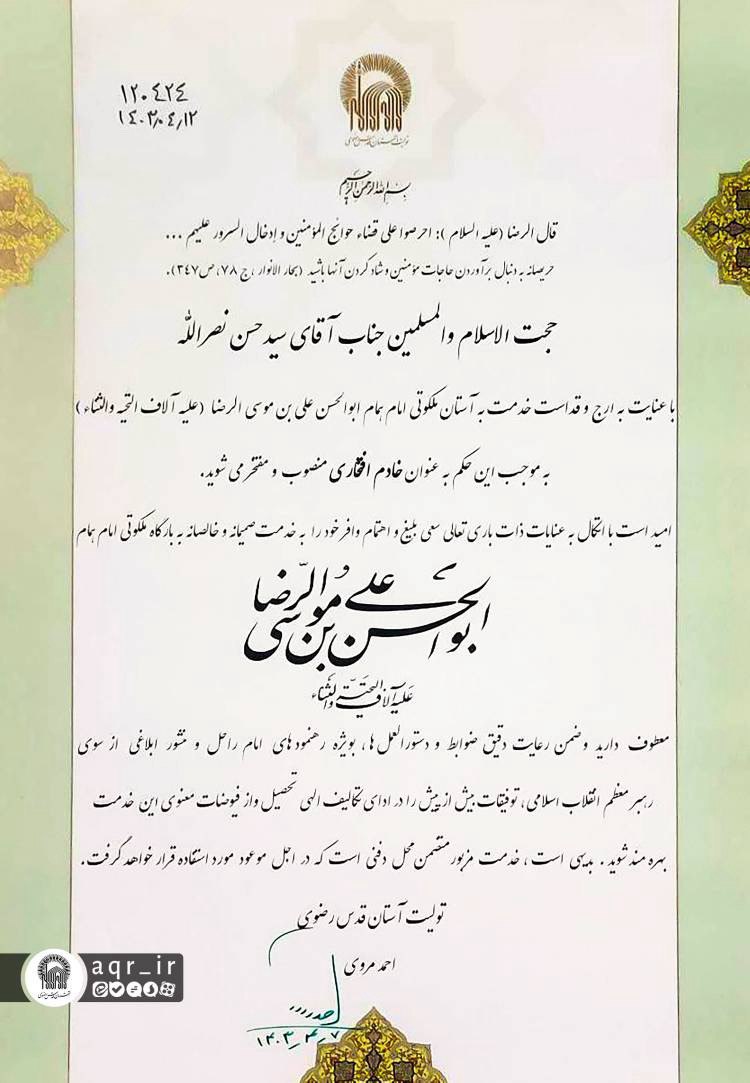 ۱۲۰۴۲۴
۱۴۰۳٫۰۴٫۱۲
تولیت آستان قدس رضوی
بسم الله الرحمن الرحیم
قال الرضا (علیه السلام): احرصوا علی قضاء حوائج المؤمنین و إدخال السرور علیهم ...
حریصانه به دنبال برآوردن حاجات مؤمنین و شاد کردن آنها باشید (بحار الانوار، ج ۷۸، ص ۳۴۷).
حجت الاسلام والمسلمین جناب آقای سید حسن نصرالله
با عنایت به ارج و قداست خدمت به آستان ملکوتی امام همام ابوالحسن علی بن موسی الرضا (علیه آلاف التحیه والثناء)
به موجب این حکم به عنوان خادم افتخاری منصوب و مفتخر می شوید.
امید است با اتکال به عنایات ذات باری تعالی سعی بلیغ و اهتمام وافر خود را به خدمت صمیمانه و خالصانه به بارگاه ملکوتی امام همام
ابوالحسن علی بن موسی الرضا
علیه آلاف التحیة والثناء
معطوف دارید و ضمن رعایت دقیق ضوابط و دستورالعمل ها، بویژه رهنمودهای امام راحل و منشور ابلاغی از سوی
رهبر معظم انقلاب اسلامی، توفیقات بیش از پیش را در ادای تکالیف الهی تحصیل و از فیوضات معنوی این خدمت
بهره مند شوید. بدیهی است، خدمت مزبور متضمن محل دفنی است که در اجل موعود مورد استفاده قرار خواهد گرفت.
تولیت آستان قدس رضوی
احمد مروی
۱۴۰۳_۴_۷
aqr_ir